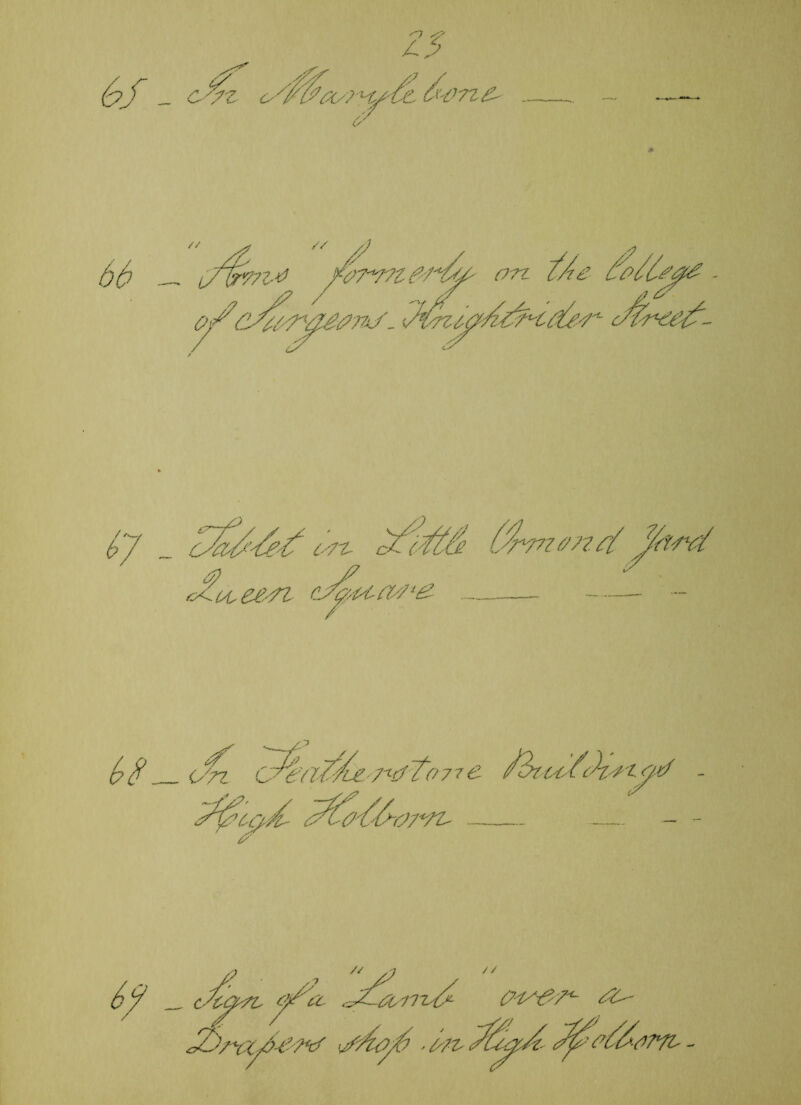 23
65 _ In Marylebone ___ _ __
66 — "Arms" formerly on the College -
of Surgeons. Knightrider Street -
67 _ Tablet in Little Ormond Yard
Queen Square ___ __ _
68 __ In Featherstone Buildings -
High Holborn ___ __ _ -
69 _ Sign of a "Lamb" over a
Drapers shop . in High Holborn -